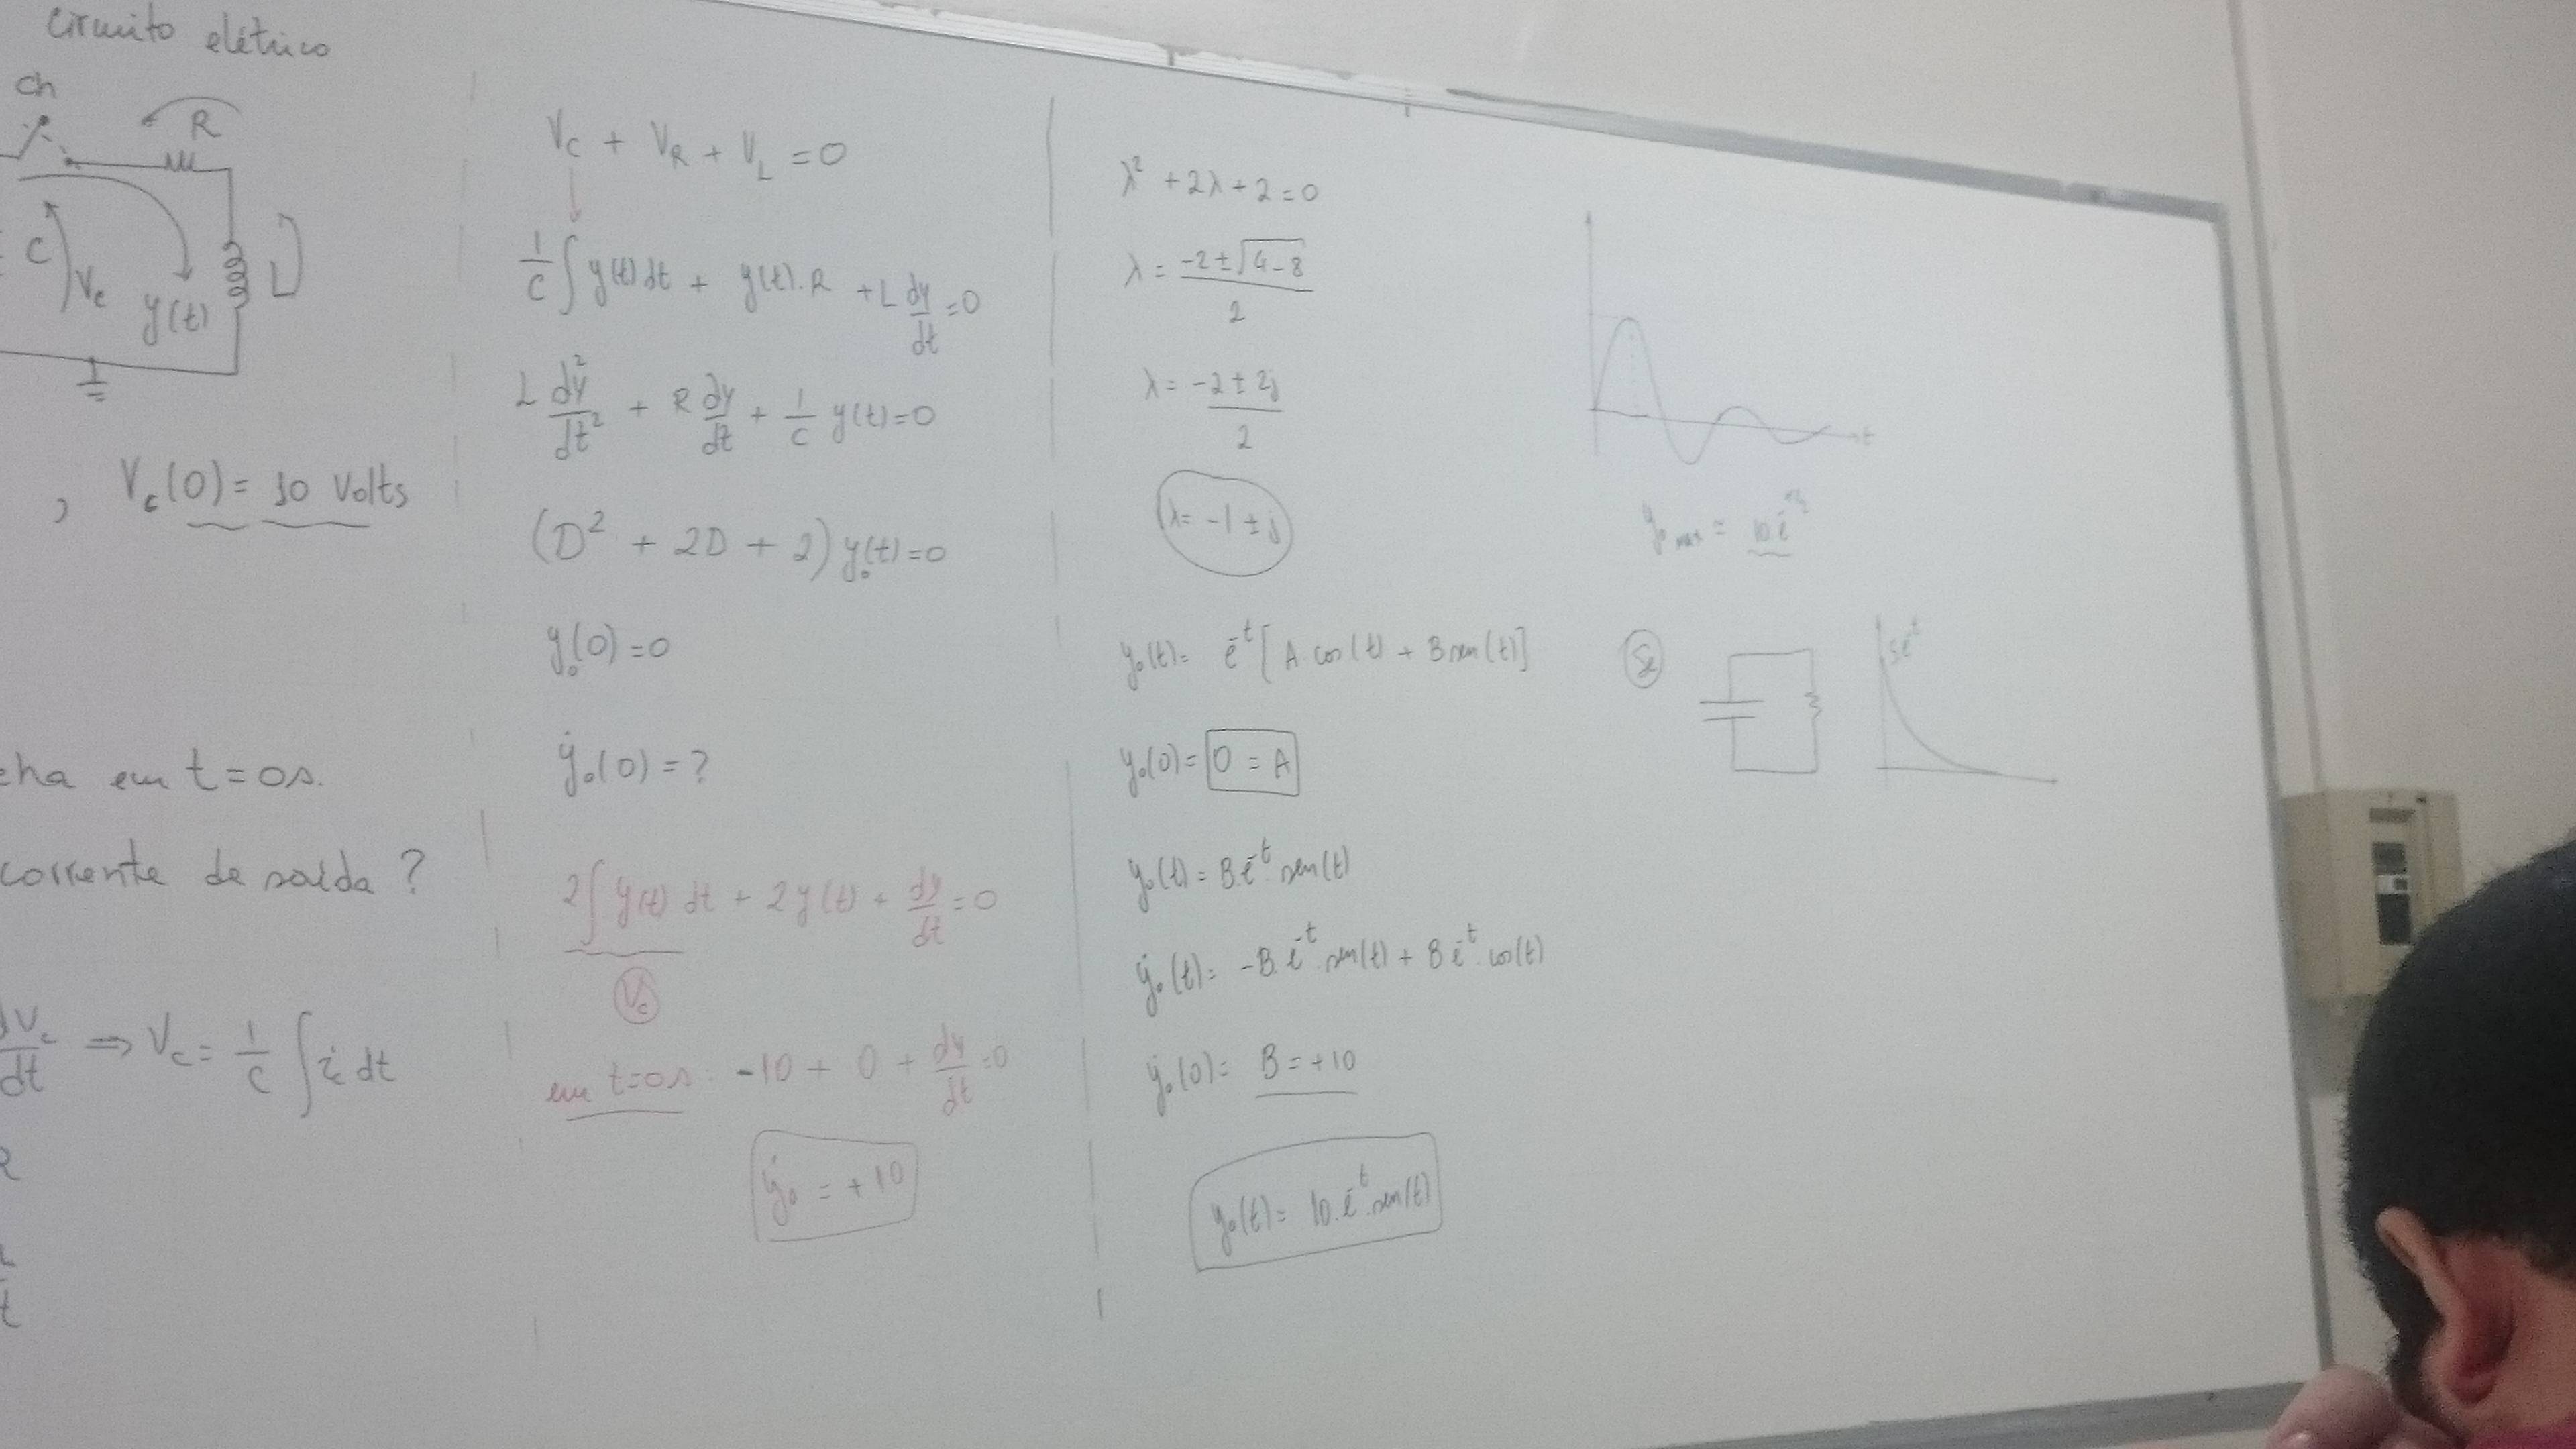 Circuito elétrico
Ch
R
C
Vc
y(t)
L
, Vc(0) = 10 Volts
em t = 0s.
corrente de saída ?
dVc/dt ⇒ Vc = 1/C ∫ ic dt
R
Vc + VR + VL = 0
1/C ∫ y(t) dt + y(t).R + L dy/dt = 0
L dy²/dt² + R dy/dt + 1/C y(t) = 0
(D² + 2D + 2) y₀(t) = 0
y₀(0) = 0
ẏ₀(0) = ?
2∫ y(t) dt + 2y(t) + dy/dt = 0
Vc
em t=0s. -10 + 0 + dy/dt = 0
ẏ₀ = +10
λ² + 2λ + 2 = 0
λ = (-2 ± √(4-8))/2
λ = (-2 ± 2j)/2
λ = -1 ± j
y₀(t) = e^-t [A cos(t) + B sen(t)]
y₀(0) = 0 = A
y₀(t) = B.e^-t sen(t)
ẏ₀(t) = -B.e^-t.sen(t) + B e^-t.cos(t)
ẏ₀(0) = B = +10
y₀(t) = 10.e^-t.sen(t)
t
y₀ max =
Se